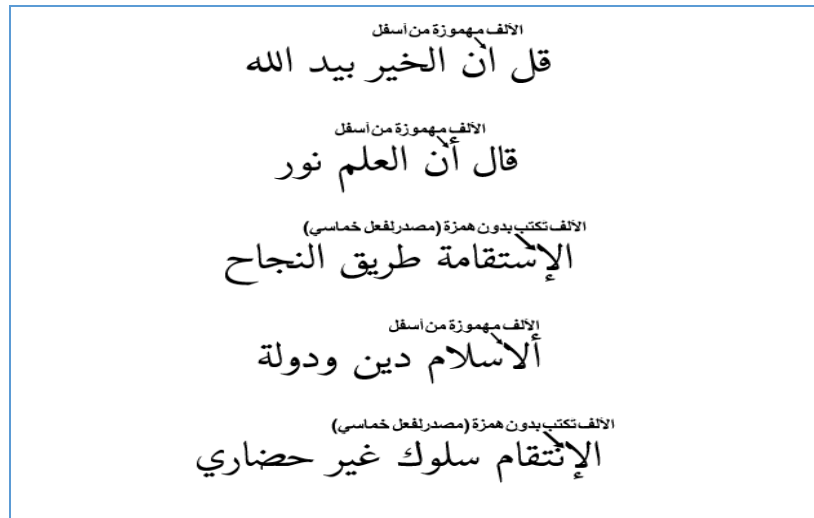 الألف مهموزة من أسفل
قل ان الخير بيد الله
الألف مهموزة من أسفل
قال أن العلم نور
الألف تكتب بدون همزة (مصدر لفعل خماسي)
الإستقامة طريق النجاح
الألف مهموزة من أسفل
ألاسلام دين ودولة
الألف تكتب بدون همزة (مصدر لفعل خماسي)
الإنتقام سلوك غير حضاري